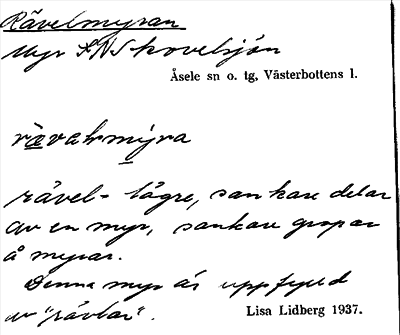 Rävelmyran
Myr SNS kovelsjön
Åsele sn o. tg, Västerbottens l.
rävalmyra
rävel- lägre, sankare delar
av en myr, sankare gropar
å myrar.
Denna myr är uppfylld
av "rävlar".
Lisa Lidberg 1937.